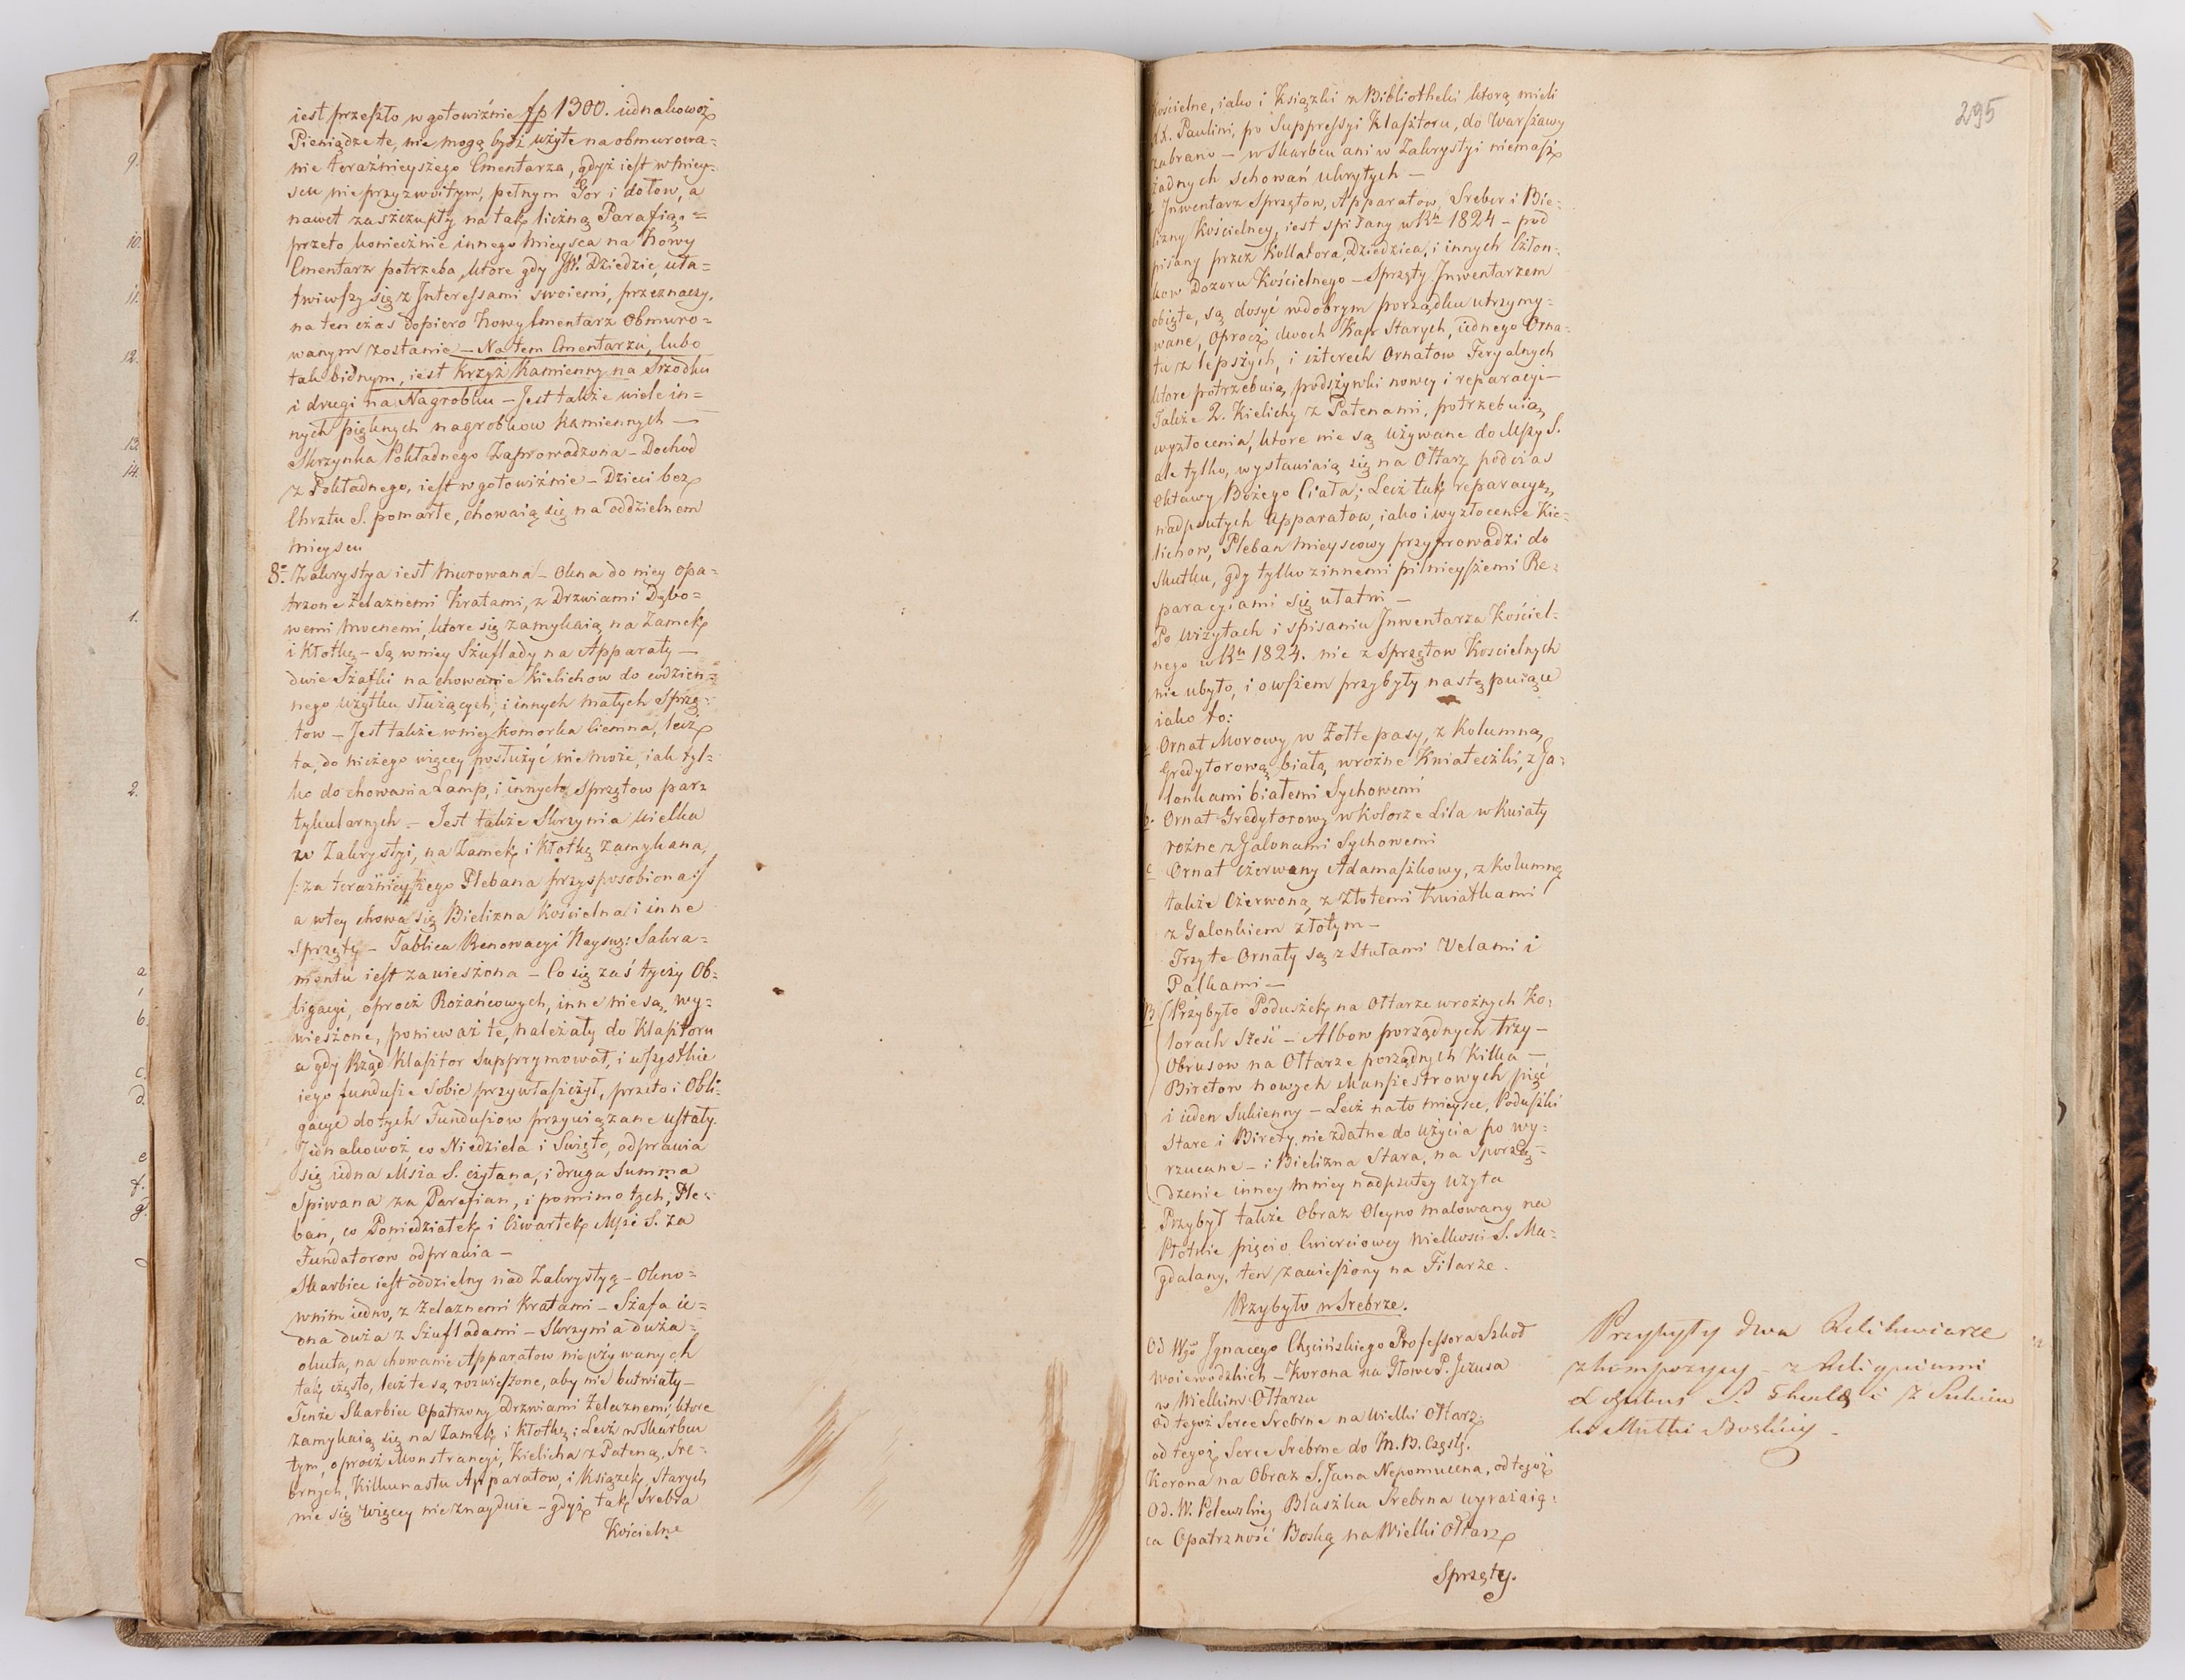 iest przeszło w gotowiźnie fp 1300. iednakowoż
Pieniądze te, nie mogą bydź użyte na obmurowa=
nie teraźnieyszego Cmentarza, gdyż iest w miey=
scu nieprzyzwoitym, pełnym Gór i dołow, a
nawet zaszczupły na tak liczną Parafią. =
przeto koniecznie innego mieysca na Nowy
Cmentarz potrzeba, ktore gdy JW. Dziedzic, uła=
twiwszy się z Interessami swoiemi, przeznaczy,
na ten czas dopiero Nowy Cmentarz Obmuro=
wanym zostanie — Na tem Cmentarzu, lubo
tak bidnym, iest Krzyż Kamienny na Srzodku
i drugi na Nagrobku — Jest także wiele in=
nych pięknych nagrobkow kamiennych —
Skrzynka Pokładnego Zaprowadzona — Dochod
z Pokładnego, iest w gotowiźnie — Dzieci bez
Chrztu S. pomarłe, chowaią się na oddzielnem
mieyscu
8. Zakrystya iest murowana — Okna do niey opa=
trzone żelaznemi Kratami, z Drzwiami Dębo=
wemi mocnemi, ktore się zamykaią na Zamek
i Kłotkę — Są w niey Szuflady na Apparaty —
dwie Szafki na chowanie Kielichow do codzien=
nego użytku służących, i innych małych Sprzę=
tow — Jest także w niey komorka Ciemna, lecz
ta, do niczego więcey posłużyć nie może, iak tyl=
ko do chowania Lamp, i innych Sprzętow par=
tykularnych — Jest także Skrzynia wielka
w Zakrystyi, na Zamek i Kłotkę zamykana,
/: za teraźnieyszego Plebana przysposobiona :/
a w tey chowa się Bielizna Kościelna i inne
Sprzęty — Tablica Renowacyi Nayśw: Sakra=
mentu iest zawieszona — Co się zaś tyczy Ob=
ligacyi, oprocz Rożańcowych, inne nie są wy=
wieszone, ponieważ te, należały do Klasztoru
a gdy Rząd Klasztor supprymował, i wszystkie
iego fundusze sobie przywłaszczył, przeto i Obli=
gacye do tych Funduszow przywiązane ustały.
Jednakowoż, co Niedziela i Swięto, odprawia
się iedna Msza S. czytana, i druga Summa
Spiwana za Parafian, i pomimo tych, Ple=
ban, co Poniedziałek i Czwartek Msze S. za
Fundatorow odprawia —
Skarbiec iest oddzielny nad Zakrystyą — Okno=
w nim iedno, z żelaznemi Kratami — Szafa ie=
dna duża z Szufladami — Skrzynia duża=
okuta, na chowanie Apparatow nieużywanych
tak często, lecz te są rozwieszone, aby nie butwiały —
Tenże Skarbiec Opatrzony Drzwiami Żelaznemi, ktore
zamykaią się na Zamek i Kłotkę: Lecz w Skarbcu
tym, oprocz Monstrancyi, Kielicha z Pateną, Sre=
brnych, Kilkunastu Apparatow, i Książek Starych
nie się więcey nieznayduie — gdyż tak Srebra
Kościelne
295
Kościelne, iako i Książki z Bibliotheki ktorą mieli
XX. Paulini, po Suppressyi Klasztoru, do Warszawy
zabrano — w Skarbcu ani w Zakrystyi niemasz
żadnych schowań ukrytych —
Jnwentarz Sprzętow, Apparatow, Sreber i Bie=
lizny Kościelney, iest spisany w Rku 1824 — pod
pisany przez Kollatora, Dziedzica, i innych Człon=
kow Dozoru Kościelnego — Sprzęty Jnwentarzem
obięte, są dosyć w dobrym porządku utrzymy=
wane, Oprocz dwoch Kap Starych, iednego Orna=
tu z lepszych, i czterech Ornatow Feryalnych
ktore potrzebuią podszywki nowey i reparacyi —
Także 2. Kielichy z Patenami, potrzebuią
wyzłocenia, ktore nie są używane do Mszy S.
ale tylko, wystawiaią się na Ołtarz podczas
Oktawy Bożego Ciała; Lecz tak reparacyą
nadpsutych Apparatow, iako i wyzłocenie Kie=
lichow, Pleban mieyscowy przyprowadzi do
Skutku, gdy tylko z innemi pilnieyszemi Re=
paracyiami się ułatwi —
Po wizytach i spisaniu Jnwentarza Kościel=
nego w Rku 1824. nic z Sprzętow Koscielnych
nie ubyło, i owszem przybyły następuiące
iako to:
a Ornat Morowy w Żołte pasy, z Kolumną
Gredytorową białą, w rożne Kwiateczki, z Ga=
lonkami białemi Sychowemi
b. Ornat Gredytorowy w Kolorze Lila w Kwiaty
rożne z Galonami Sychowemi
c Ornat czerwony Adamaszkowy, z Kolumną
także Czerwoną, z Złotemi Kwiatkami
z Galonkiem złotym —
Trzy te Ornaty są z Stułami Velami i
Palkami —
B Przybyło Poduszek na Ołtarze w rożnych Ko=
lorach Sześć — Albow porządnych trzy —
Obrusow na Ołtarze porządnych Kilka —
Biretow nowych Manszestrowych pięć
i ieden Sukienny — Lecz na to mieysce, Poduszki
Stare i Birety niezdatne do użycia po wy=
rzucane — i Bielizna Stara, na Sporzą=
dzenie inney mniey nadpsutey użyta
Przybył także Obraz Oleyno malowany na
Płotnie pięcio Cwierciowey Wielkosci S. Ma=
gdalany, ten zawieszony na Filarze.
Przybyło w Srebrze.
Od Wgo Jgnacego Chęcińskiego Professora Szkoł
Woiewodzkich — Korona na Głowę P. Jezusa
w Wielkim Ołtarzu
Od tegoż Serce Srebrne na Wielki Ołtarz
od tegoż Serce Srebrne do M. B. Częstę.
Korona na Obraz S. Jana Nepomucena, od tegoż
Od. W. Polewskiey Blaszka Srebrna wyrażaią=
ca Opatrzność Boską na Wielki Ołtarz
Sprzęty.
Przybyły dwa Relikwiarze
z kompozycyi — z Reliquiami
S. Thecla i z Sukien
ki Matki Boskiey —